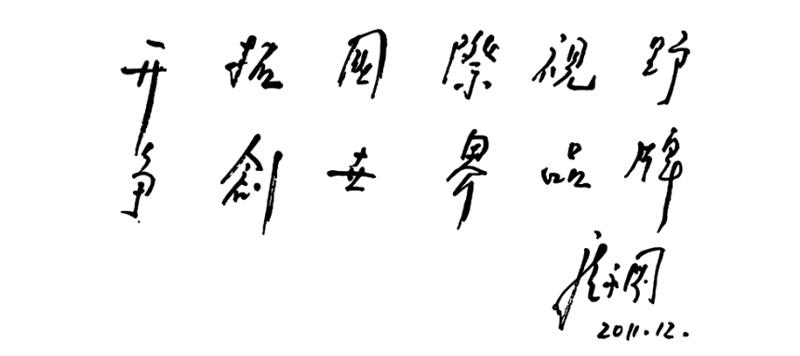 开拓國際視野
争創世界品牌
2011.12.